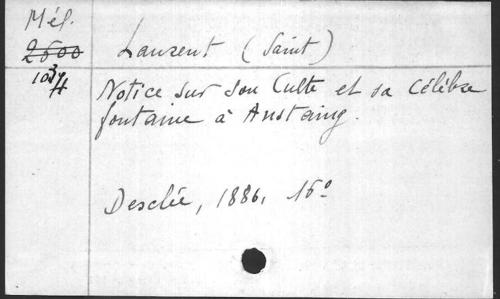 Mél.
2600
Laurent (Saint)
Notice sur son Culte et sa célèbre
fontaine à Anstaing.
Desclée, 1886, 16°